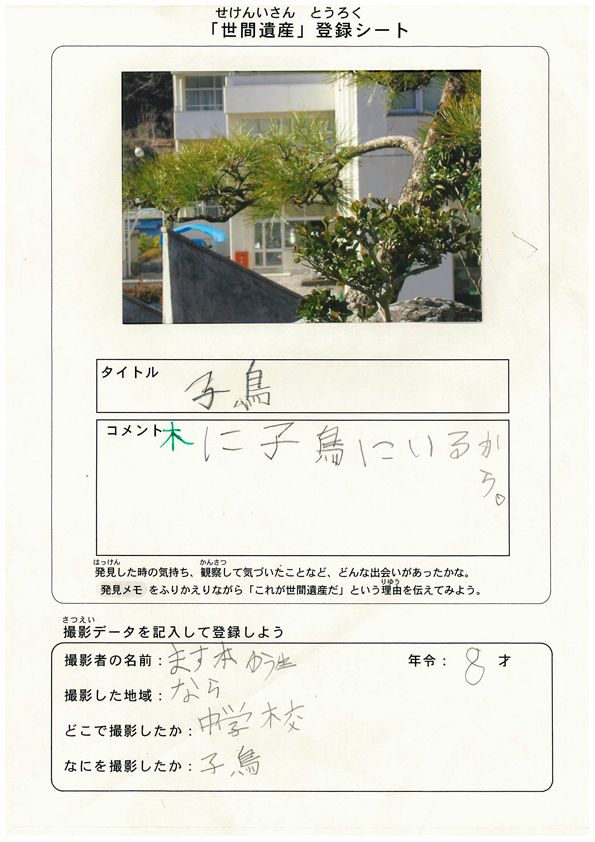 せけんいさん とうろく
「世間遺産」登録シート
タイトル
子鳥
コメント
木に子鳥にいるか
ら。
はっけん かんさつ
発見した時の気持ち、観察して気づいたことなど、どんな出会いがあったかな。
りゆう
発見メモ をふりかえりながら「これが世間遺産だ」という理由を伝えてみよう。
さつえい
撮影データを記入して登録しよう
撮影者の名前：ます本 ゆう生 年令：8才
撮影した地域：なら
どこで撮影したか：中学校
なにを撮影したか：子鳥